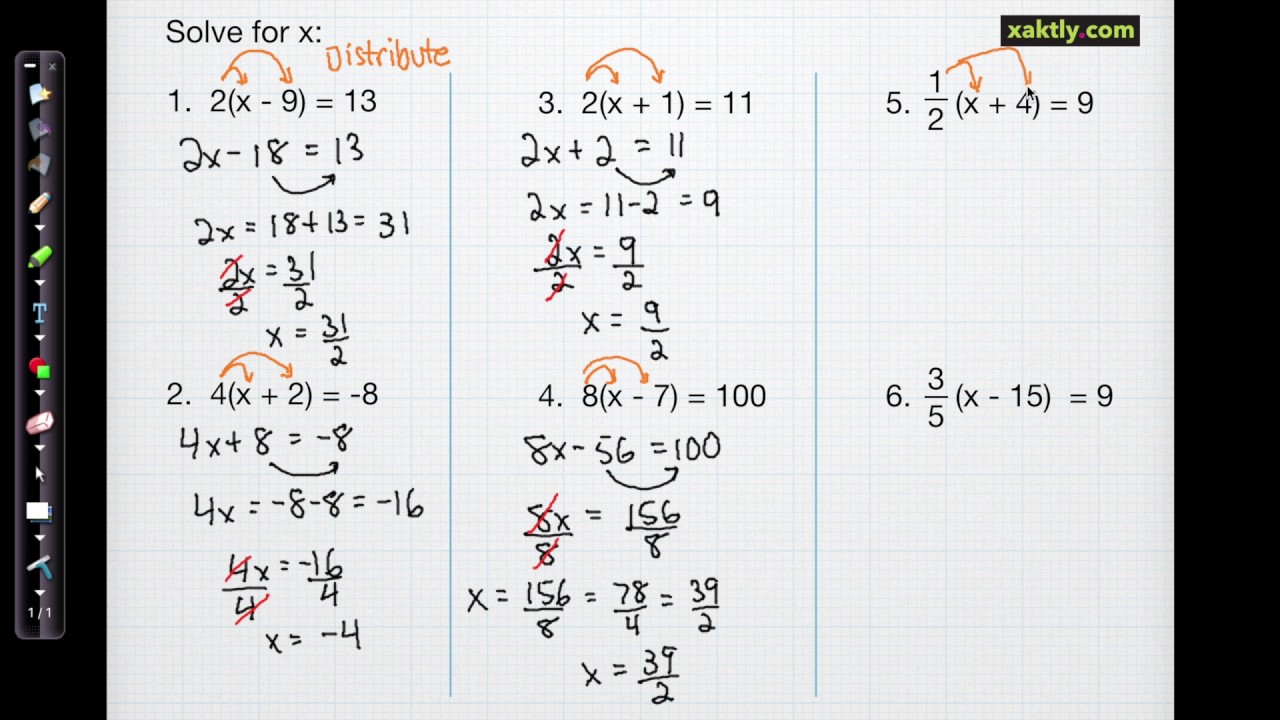 Solve for x:
Distribute
xaktly.com
1. 2(x - 9) = 13
2x - 18 = 13
2x = 18 + 13 = 31
2x/2 = 31/2
x = 31/2
2. 4(x + 2) = -8
4x + 8 = -8
4x = -8 - 8 = -16
4x/4 = -16/4
x = -4
3. 2(x + 1) = 11
2x + 2 = 11
2x = 11 - 2 = 9
2x/2 = 9/2
x = 9/2
4. 8(x - 7) = 100
8x - 56 = 100
8x/8 = 156/8
x = 156/8 = 78/4 = 39/2
x = 39/2
5. 1/2 (x + 4) = 9
6. 3/5 (x - 15) = 9
T
1/1